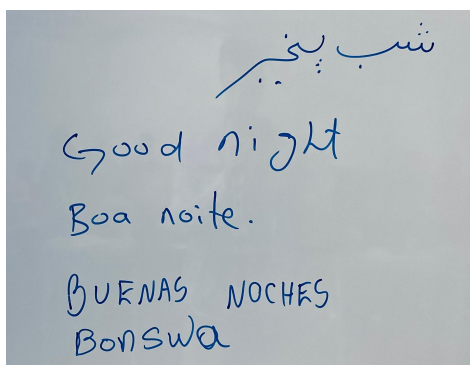 شب پخیر
Good night
Boa noite.
BUENAS NOCHES
Bonswa